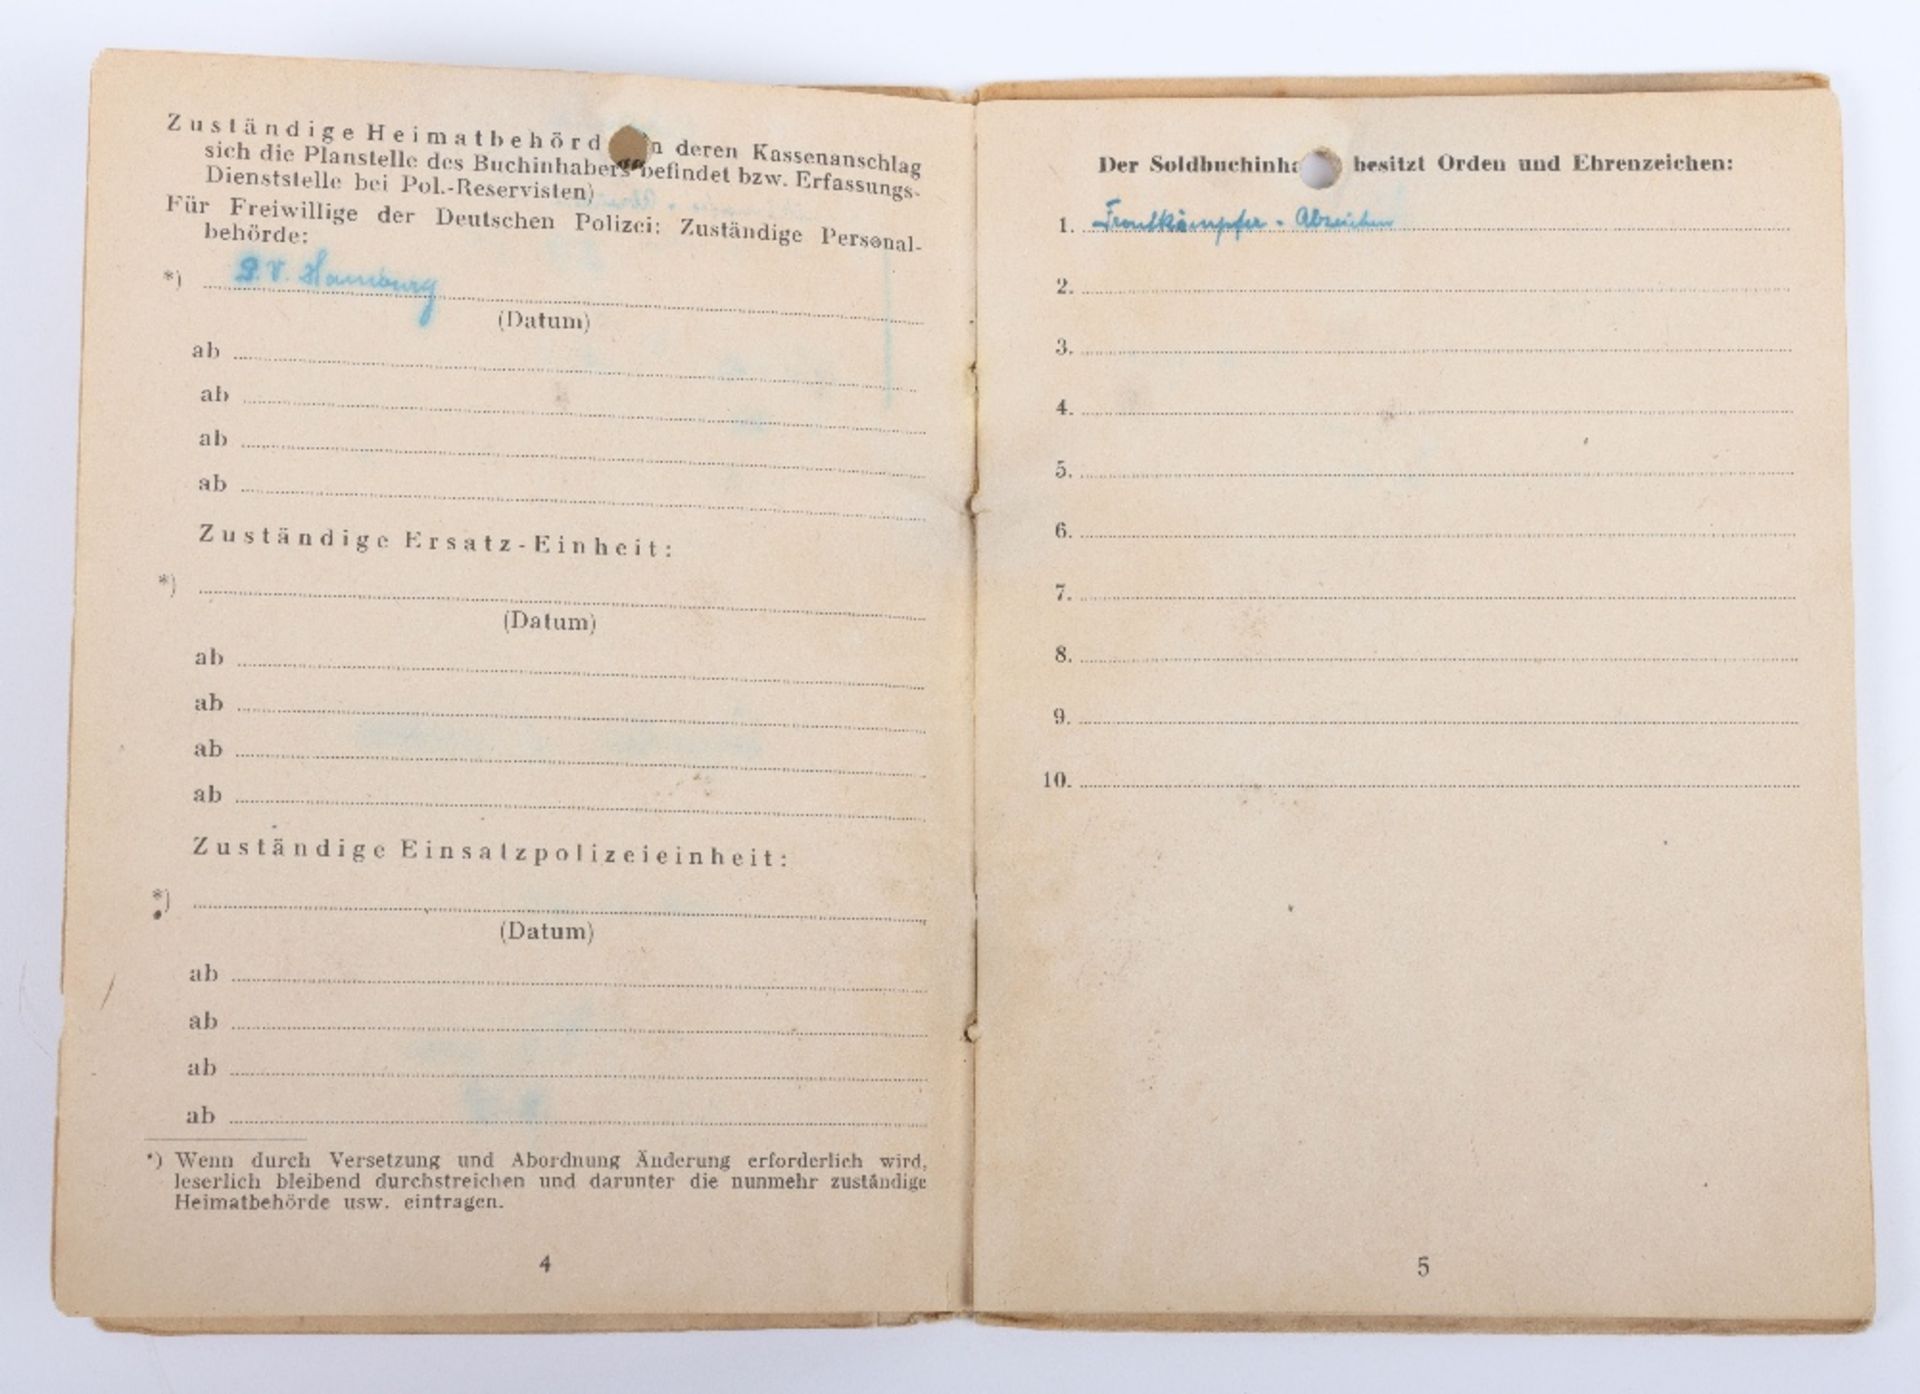 Zuständige Heimatbehörd n deren Kassenanschlag
sich die Planstelle des Buchinhabers befindet bzw. Erfassungs-
Dienststelle bei Pol.-Reservisten)
Für Freiwillige der Deutschen Polizei: Zuständige Personal-
behörde:
*) P. V. Hamburg
(Datum)
ab
ab
ab
ab
Zuständige Ersatz-Einheit:
*)
(Datum)
ab
ab
ab
ab
Zuständige Einsatzpolizeieinheit:
*)
(Datum)
ab
ab
ab
ab
*) Wenn durch Versetzung und Abordnung Änderung erforderlich wird,
leserlich bleibend durchstreichen und darunter die nunmehr zuständige
Heimatbehörde usw. eintragen.
4
Der Soldbuchinha besitzt Orden und Ehrenzeichen:
1. Frontkämpfer - Abzeichen
2.
3.
4.
5.
6.
7.
8.
9.
10.
5